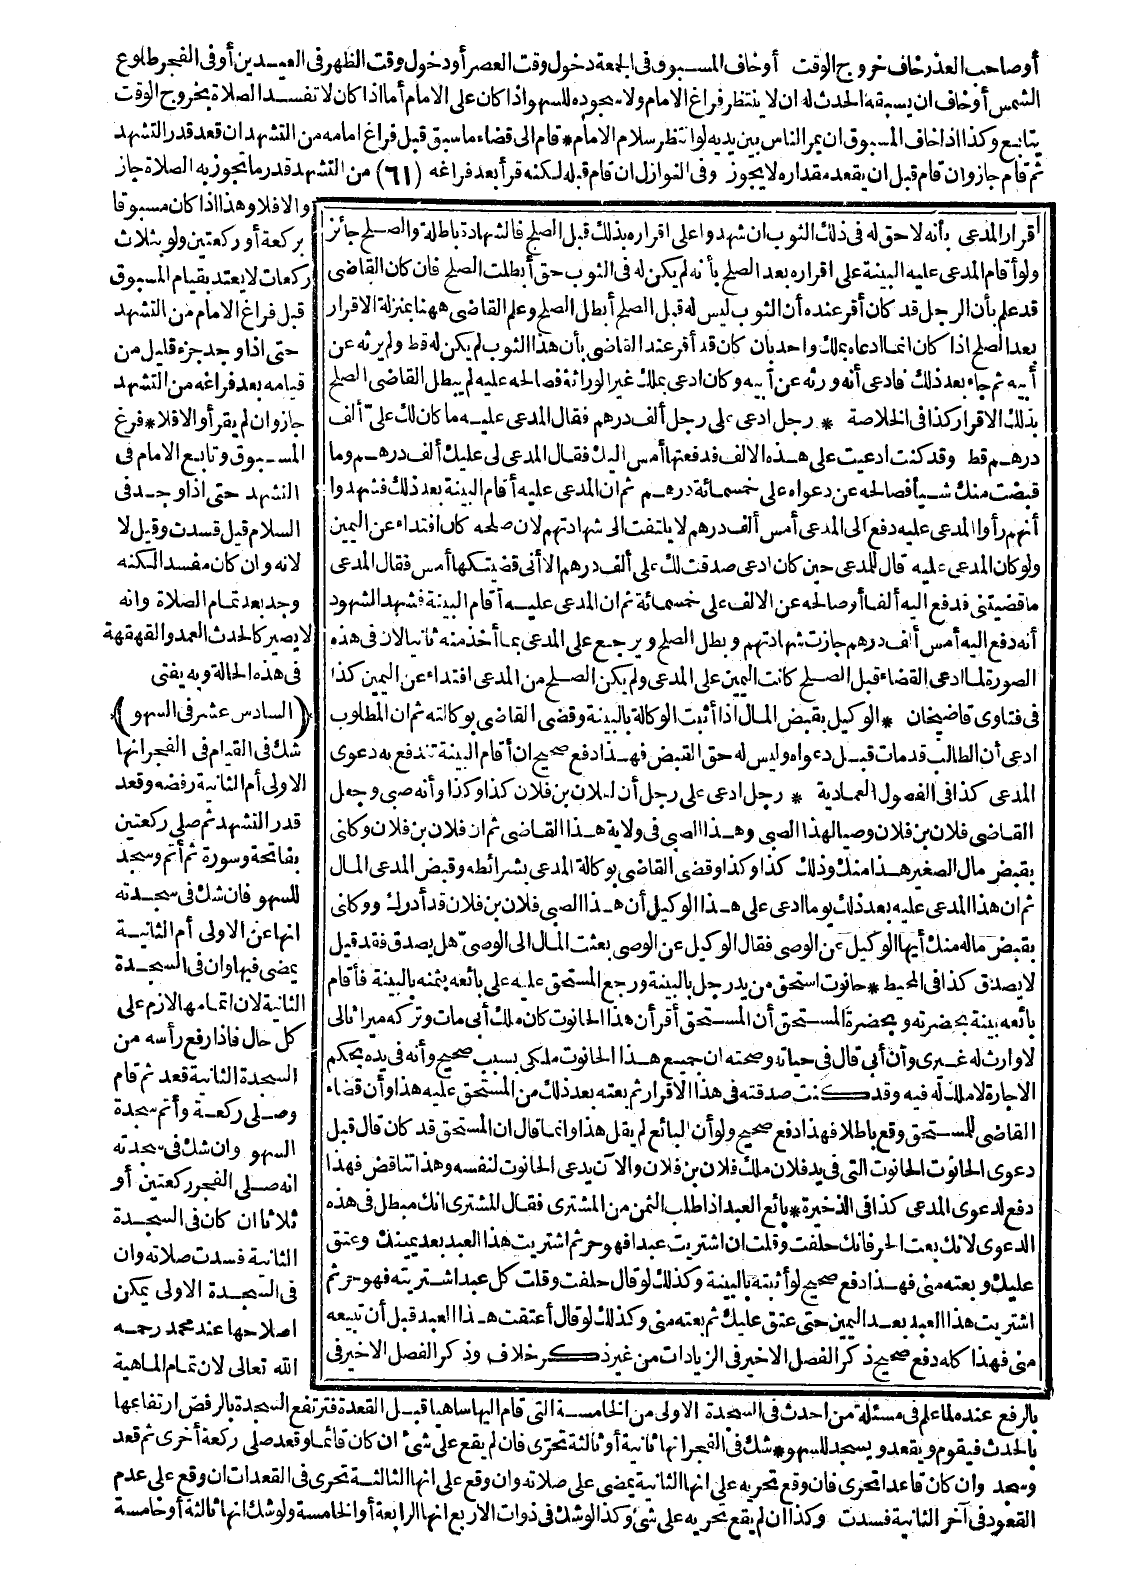 أو صاحب العذر خاف خروج الوقت أو خاف المسبوق في الجمعة دخول وقت العصر أو دخول وقت الظهر في العيدين أو في الفجر طلوع
الشمس أو خاف ان يسبقه الحدث له ان لا ينتظر فراغ الامام ولا سجوده للسهو اذا كان على الامام أما اذا كان لا تفسد الصلاة بخروج الوقت
يتابع وكذا اذا خاف المسبوق ان يمر الناس بين يديه لو انتظر سلام الامام * قام الى قضاء ما سبق قبل فراغ امامه من التشهد ان قعد قدر التشهد
ثم قام جاز وان قام قبل ان يقعد مقداره لا يجوز وفي النوازل ان قام قبله لكنه قرأ بعد فراغه (٦١) من التشهد قدر ما تجوز به الصلاة جاز
والا فلا وهذا اذا كان مسبوقا
بركعة أو ركعتين ولو بثلاث
ركعات لا يعتد بقيام المسبوق
قبل فراغ الامام من التشهد
حتى اذا وجد جزء قليل من
قيامه بعد فراغه من التشهد
جاز وان لم يقرأ والا فلا * فرغ
المسبوق وتابع الامام في
التشهد حتى اذا وجد في
السلام قيل فسدت وقيل لا
لانه وان كان مفسدا لكنه
وجد بعد تمام الصلاة وانه
لا يصير كالحدث العمد والقهقهة
في هذه الحالة وبه يفتى
(السادس عشر في السهو)
شك في القيام في الفجر انها
الاولى أم الثانية رفضه وقعد
قدر التشهد ثم صلى ركعتين
بفاتحة وسورة ثم أتم وسجد
للسهو فان شك في سجدته
انها عن الاولى أم الثانية
يمضي فيها وان في السجدة
الثانية لان اتمامها لازم على
كل حال فاذا رفع رأسه من
السجدة الثانية قعد ثم قام
وصلى ركعة وأتم سجدة
السهو وان شك في سجدته
انه صلى الفجر ركعتين أو
ثلاثا ان كان في السجدة
الثانية فسدت صلاته وان
في السجدة الاولى يمكن
اصلاحها عند محمد رحمه
الله تعالى لان تمام الماهية
اقرار المدعى بأنه لا حق له في ذلك الثوب ان شهدوا على اقراره بذلك قبل الصلح فالشهادة باطلة والصلح جائز
ولو أقام المدعى عليه البينة على اقراره بعد الصلح بأنه لم يكن له في الثوب حق أبطلت الصلح فان كان القاضي
قد علم بأن الرجل قد كان أقر عنده أن الثوب ليس له قبل الصلح أبطل الصلح وعلم القاضي ههنا بمنزلة الاقرار
بعد الصلح اذا كان انما ادعاه بملك واحد بان كان قد أقر عند القاضي بأن هذا الثوب لم يكن له قط ولم يرثه عن
أبيه ثم جاء بعد ذلك فادعى أنه ورثه عن أبيه وكان ادعى بملك غير الوراثة فصالحه عليه لم يبطل القاضي الصلح
بذلك الاقرار كذا في الخلاصة * رجل ادعى على رجل ألف درهم فقال المدعى عليه ما كان لك علىّ ألف
درهم قط وقد كنت ادعيت على هذه الالف فدفعتها أمس اليك فقال المدعى لي عليك ألف درهم وما
قبضت منك شيأ فصالحه عن دعواه على خمسمائة درهم ثم ان المدعى عليه أقام البينة بعد ذلك فشهدوا
أنهم رأوا المدعى عليه دفع الى المدعى أمس ألف درهم لا يلتفت الى شهادتهم لان صلحه كان افتداء عن اليمين
ولو كان المدعى عليه قال للمدعى حين كان ادعى صدقت لك على ألف درهم الا أني قضيتكها أمس فقال المدعى
ما قضيتني فدفع اليه ألفا أو صالحه عن الالف على خمسمائة ثم ان المدعى عليه أقام البينة فشهد الشهود
أنه دفع اليه أمس ألف درهم جازت شهادتهم وبطل الصلح ويرجع على المدعى بما أخذ منه ثانيا لان في هذه
الصورة لما ادعى القضاء قبل الصلح كانت اليمين على المدعى ولم يكن الصلح من المدعى افتداء عن اليمين كذا
في فتاوى قاضيخان * الوكيل بقبض المال اذا أثبت الوكالة بالبينة وقضى القاضي بوكالته ثم ان المطلوب
ادعى أن الطالب قد مات قبل دعواه وليس له حق القبض فهذا دفع صحيح ان أقام البينة تندفع به دعوى
المدعى كذا في الفصول العمادية * رجل ادعى على رجل أن لفلان بن فلان كذا وكذا وأنه صبي وجعل
القاضي فلان بن فلان وصيا لهذا الصبي وهذا الصبي في ولاية هذا القاضي ثم ان فلان بن فلان وكلني
بقبض مال الصغير هذا منك وذلك كذا وكذا وقضى القاضي بوكالة المدعى بشرائطه وقبض المدعى المال
ثم ان هذا المدعى عليه بعد ذلك يوما ادعى على هذا الوكيل أن هذا الصبي فلان بن فلان قد أدرك ووكلني
بقبض ماله منك أيها الوكيل عن الوصي فقال الوكيل عن الوصي بعثت المال الى الوصيّ هل يصدق فقد قيل
لا يصدق كذا في المحيط * حانوت استحق من يد رجل بالبينة ورجع المستحق عليه على بائعه بثمنه بالبينة فأقام
بائعه بينة بحضرته وبحضرة المستحق أن المستحق أقر أن هذا الحانوت كان ملك أبي مات وتركه ميراثا لي
لا وارث له غيري وأن أبي قال في حياته وصحته ان جميع هذا الحانوت ملكي بسبب صحيح وأنه في يده بحكم
الاجارة لا ملك له فيه وقد كنت صدقته في هذا الاقرار ثم بعته بعد ذلك من المستحق عليه هذا وأن قضاء
القاضي للمستحق وقع باطلا فهذا دفع صحيح ولو أن البائع لم يقل هذا وانما قال ان المستحق قد كان قال قبل
دعوى الحانوت الحانوت التي في يد فلان ملك فلان بن فلان والآن يدعى الحانوت لنفسه وهذا تناقض فهذا
دفع لدعوى المدعى كذا في الذخيرة * بائع العبد اذا طلب الثمن من المشترى فقال المشترى انك مبطل في هذه
الدعوى لانك بعت الحر فانك حلفت وقلت ان اشتريت عبدا فهو حر ثم اشتريت هذا العبد بعد يمينك وعتق
عليك وبعته مني فهذا دفع صحيح لو أثبته بالبينة وكذلك لو قال حلفت وقلت كل عبد اشتريته فهو حر ثم
اشتريت هذا العبد بعد اليمين حتى عتق عليك ثم بعته مني وكذلك لو قال أعتقت هذا العبد قبل أن تبيعه
مني فهذا كله دفع صحيح ذكر الفصل الاخير في الزيادات من غير ذكر خلاف وذكر الفصل الاخير في
بالرفع عنده لما علم في مسئلة من احدث في السجدة الاولى من الخامسة التي قام اليها ساهيا قبل القعدة فترتفع السجدة بالرفض ارتفاعها
بالحدث فيقوم ويقعد ويسجد للسهو * شك في الفجر انها ثانية أو ثالثة تحرّى فان لم يقع على شئ ان كان قائما وقعد صلى ركعة أخرى ثم قعد
وسجد وان كان قاعدا تحرى فان وقع تحريه على انها الثانية يمضي على صلاته وان وقع على انها الثالثة تحرى في القعدات ان وقع على عدم
القعود في آخر الثانية فسدت وكذا ان لم يقع تحريه على شئ وكذا لو شك في ذوات الاربع انها الرابعة أو الخامسة ولو شك انها ثالثة أو خامسة